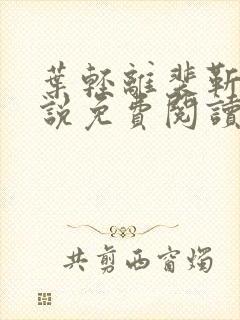 葉輕離裴靳
說免費閱讀
共剪西窗燭